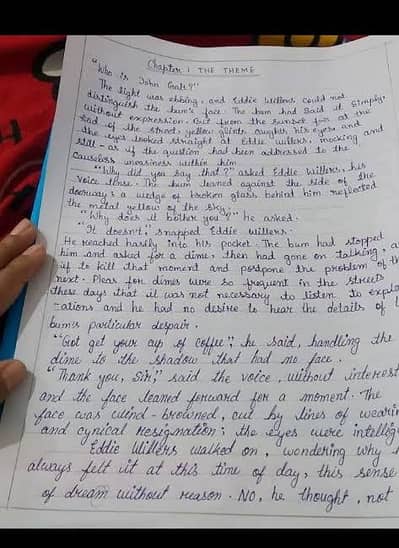 Chapter : THE THEME
"Who is John Galt?"
The light was ebbing, and Eddie Willers could not
distinguish the bum's face. The bum had said it simply,
without expression. But from the sunset far at the
end of the street, yellow glints caught his eyes, and
the eyes looked straight at Eddie Willers, mocking and
still - as if the question had been addressed to the
causeless uneasiness within him
"Why did you say that?" asked Eddie Willers, his
voice tense. The bum leaned against the side of the
doorway; a wedge of broken glass behind him reflected
the metal yellow of the sky.
"Why does it bother you?" he asked.
"It doesn't," snapped Eddie Willers.
He reached hastily into his pocket. The bum had stopped
him and asked for a dime, then had gone on talking, a
if to kill that moment and postpone the problem of th
next. Pleas for dimes were so frequent in the streets
these days that it was not necessary to listen to expla
-ations and he had no desire to hear the details of
bum's particular despair.
"Got get your cup of coffee", he said, handling the
dime to the shadow that had no face.
"Thank you, Sir," said the voice, without interest
and the face leaned forward for a moment. The
face was wind-browned, cut by lines of wearin
and cynical resignation; the eyes were intellig
Eddie Willers walked on, wondering why
always felt it at this time of day, this sense
of dream without reason. No, he thought, not